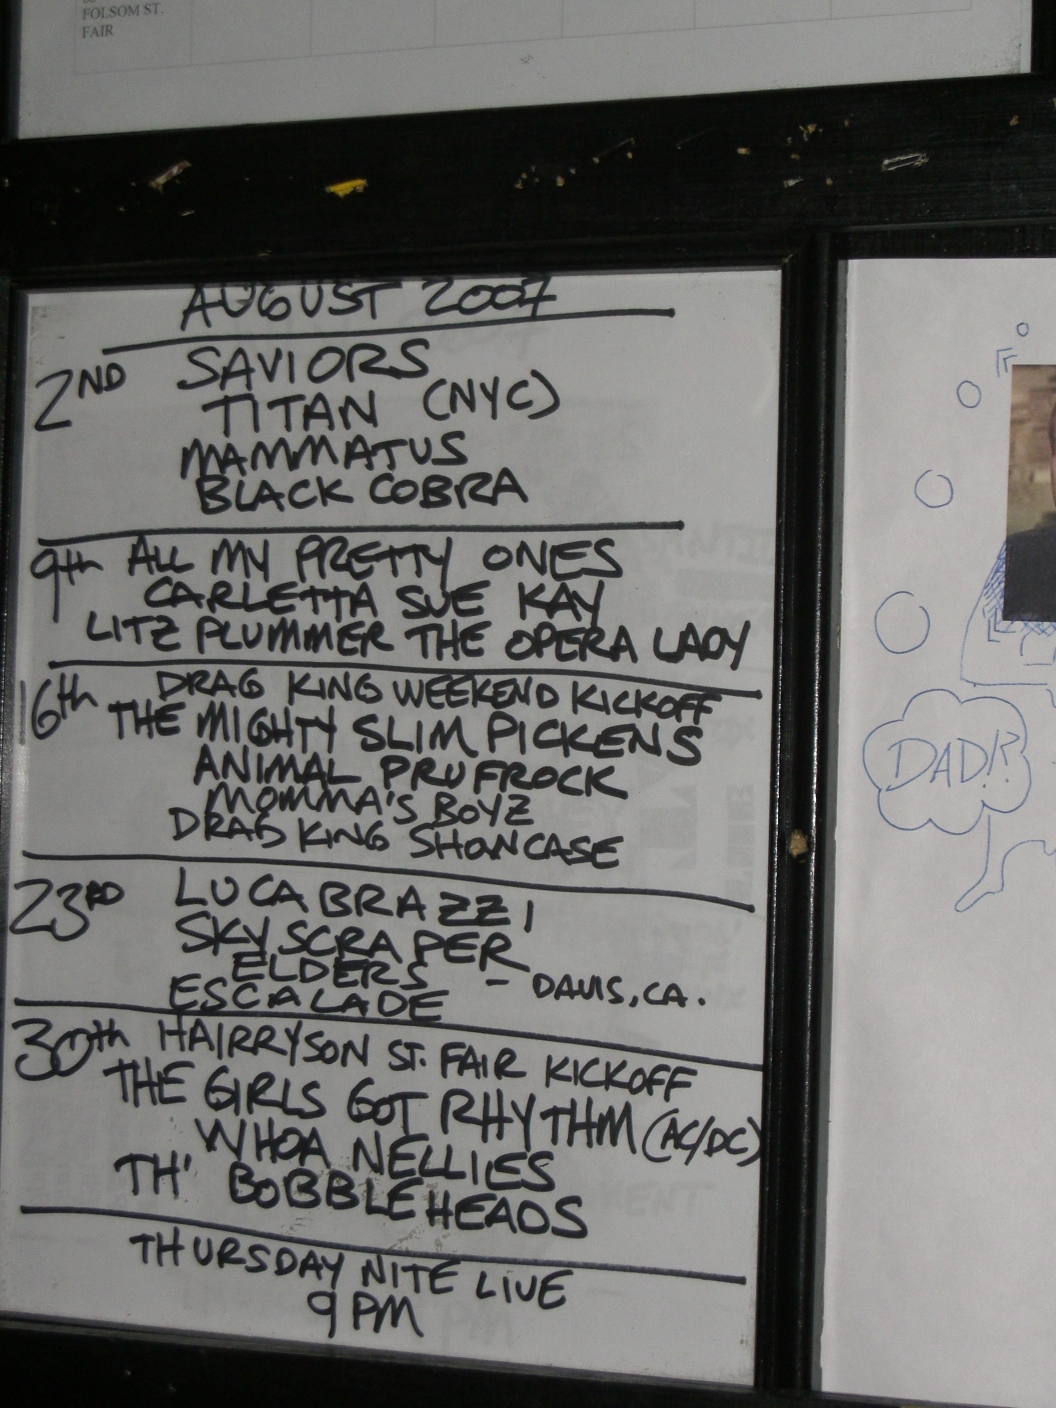 FOLSOM ST.
FAIR
AUGUST 2007
2ND SAVIORS
TITAN (NYC)
MAMMATUS
BLACK COBRA
9th ALL MY PRETTY ONES
CARLETTA SUE KAY
LITZ PLUMMER THE OPERA LADY
16th DRAG KING WEEKEND KICKOFF
THE MIGHTY SLIM PICKENS
ANIMAL PRUFROCK
MOMMA'S BOYZ
DRAG KING SHOWCASE
23RD LUCA BRAZZI
SKYSCRAPER
ELDERS - DAVIS, CA.
ESCALADE
30th HAIRRYSON ST. FAIR KICKOFF
THE GIRLS GOT RHYTHM (AC/DC)
WHOA NELLIES
TH' BOBBLEHEADS
THURSDAY NITE LIVE
9 PM
DAD!?